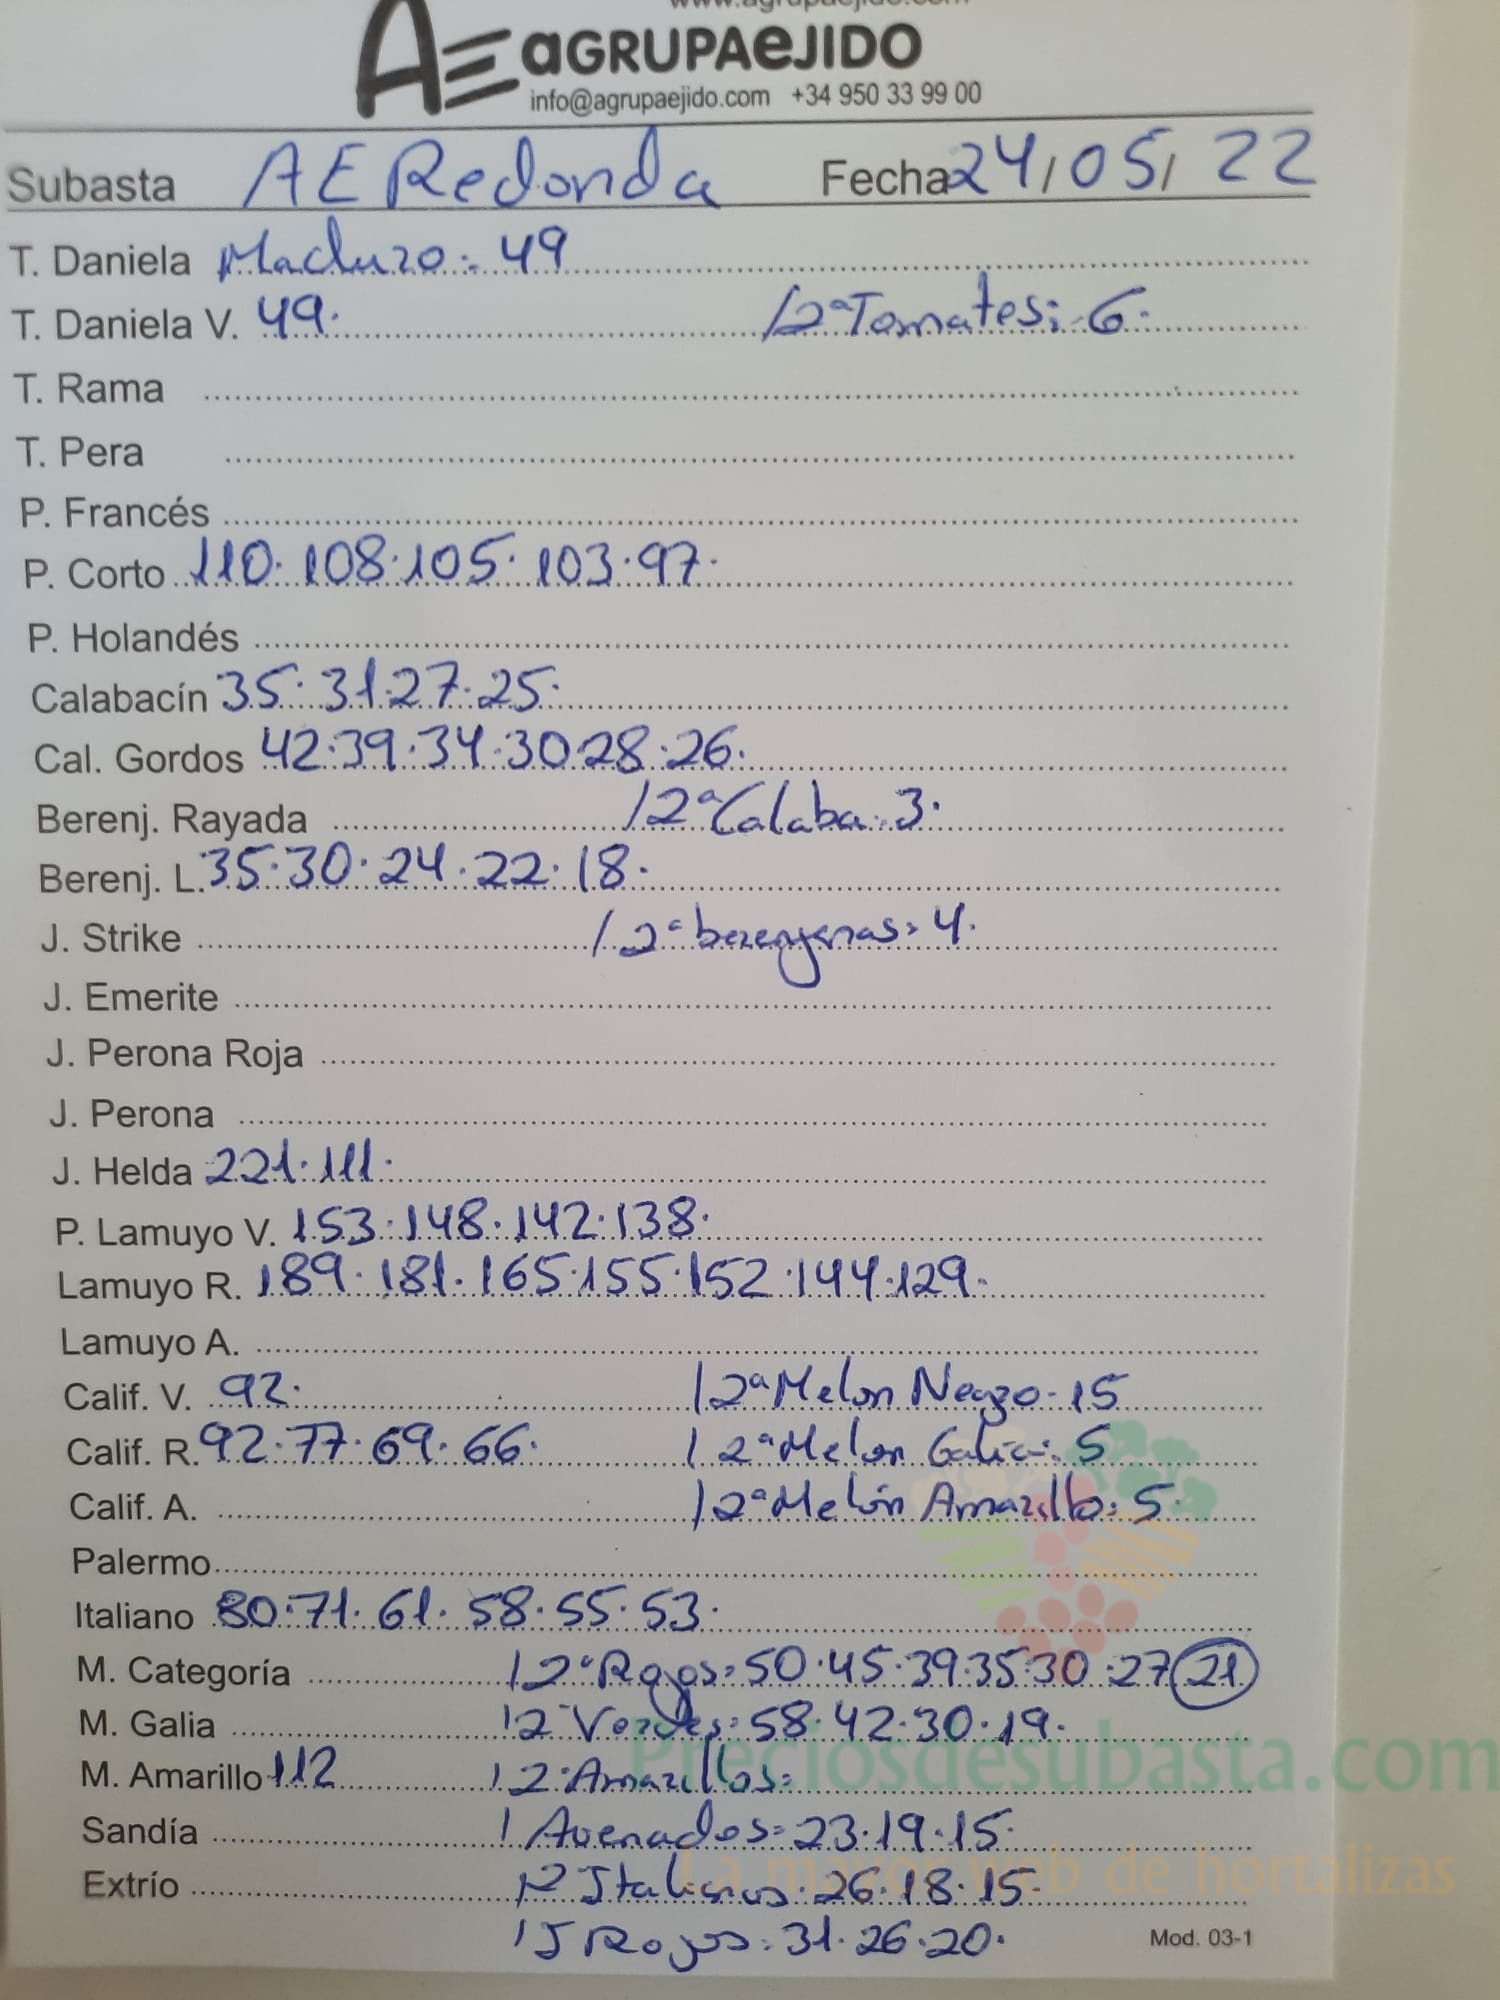 www.agrupaejido.com
AE aGRUPAeJIDO
info@agrupaejido.com +34 950 33 99 00
Subasta AE Redonda Fecha 24/05/22
T. Daniela Maduro: 49
T. Daniela V. 49. / 2ª Tomates: 6.
T. Rama
T. Pera
P. Francés
P. Corto 110. 108. 105. 103. 97.
P. Holandés
Calabacín 35. 31. 27. 25.
Cal. Gordos 42. 39. 34. 30. 28. 26.
Berenj. Rayada / 2ª Calaba: 3.
Berenj. L. 35. 30. 24. 22. 18.
J. Strike / 2ª berenjenas: 4.
J. Emerite
J. Perona Roja
J. Perona
J. Helda 221. 111.
P. Lamuyo V. 153. 148. 142. 138.
Lamuyo R. 189. 181. 165. 155. 152. 144. 129.
Lamuyo A.
Calif. V. 92. / 2ª Melon Negro. 15
Calif. R. 92. 77. 69. 66. / 2ª Melon Galia: 5
Calif. A. / 2ª Melón Amarillo: 5.
Palermo
Italiano 80. 71. 61. 58. 55. 53.
M. Categoría / 2ª Rojos: 50. 45. 39. 35. 30. 27 21
M. Galia / 2ª Verdes: 58. 42. 30. 19.
M. Amarillo 112 / 2ª Amarillos:
Sandía / Asenados: 23. 19. 15.
Extrío / 2ª Italianos: 26. 18. 15
/ J Rojos: 31. 26. 20.
Mod. 03-1
Preciosdesubasta.com
La mayor web de hortalizas